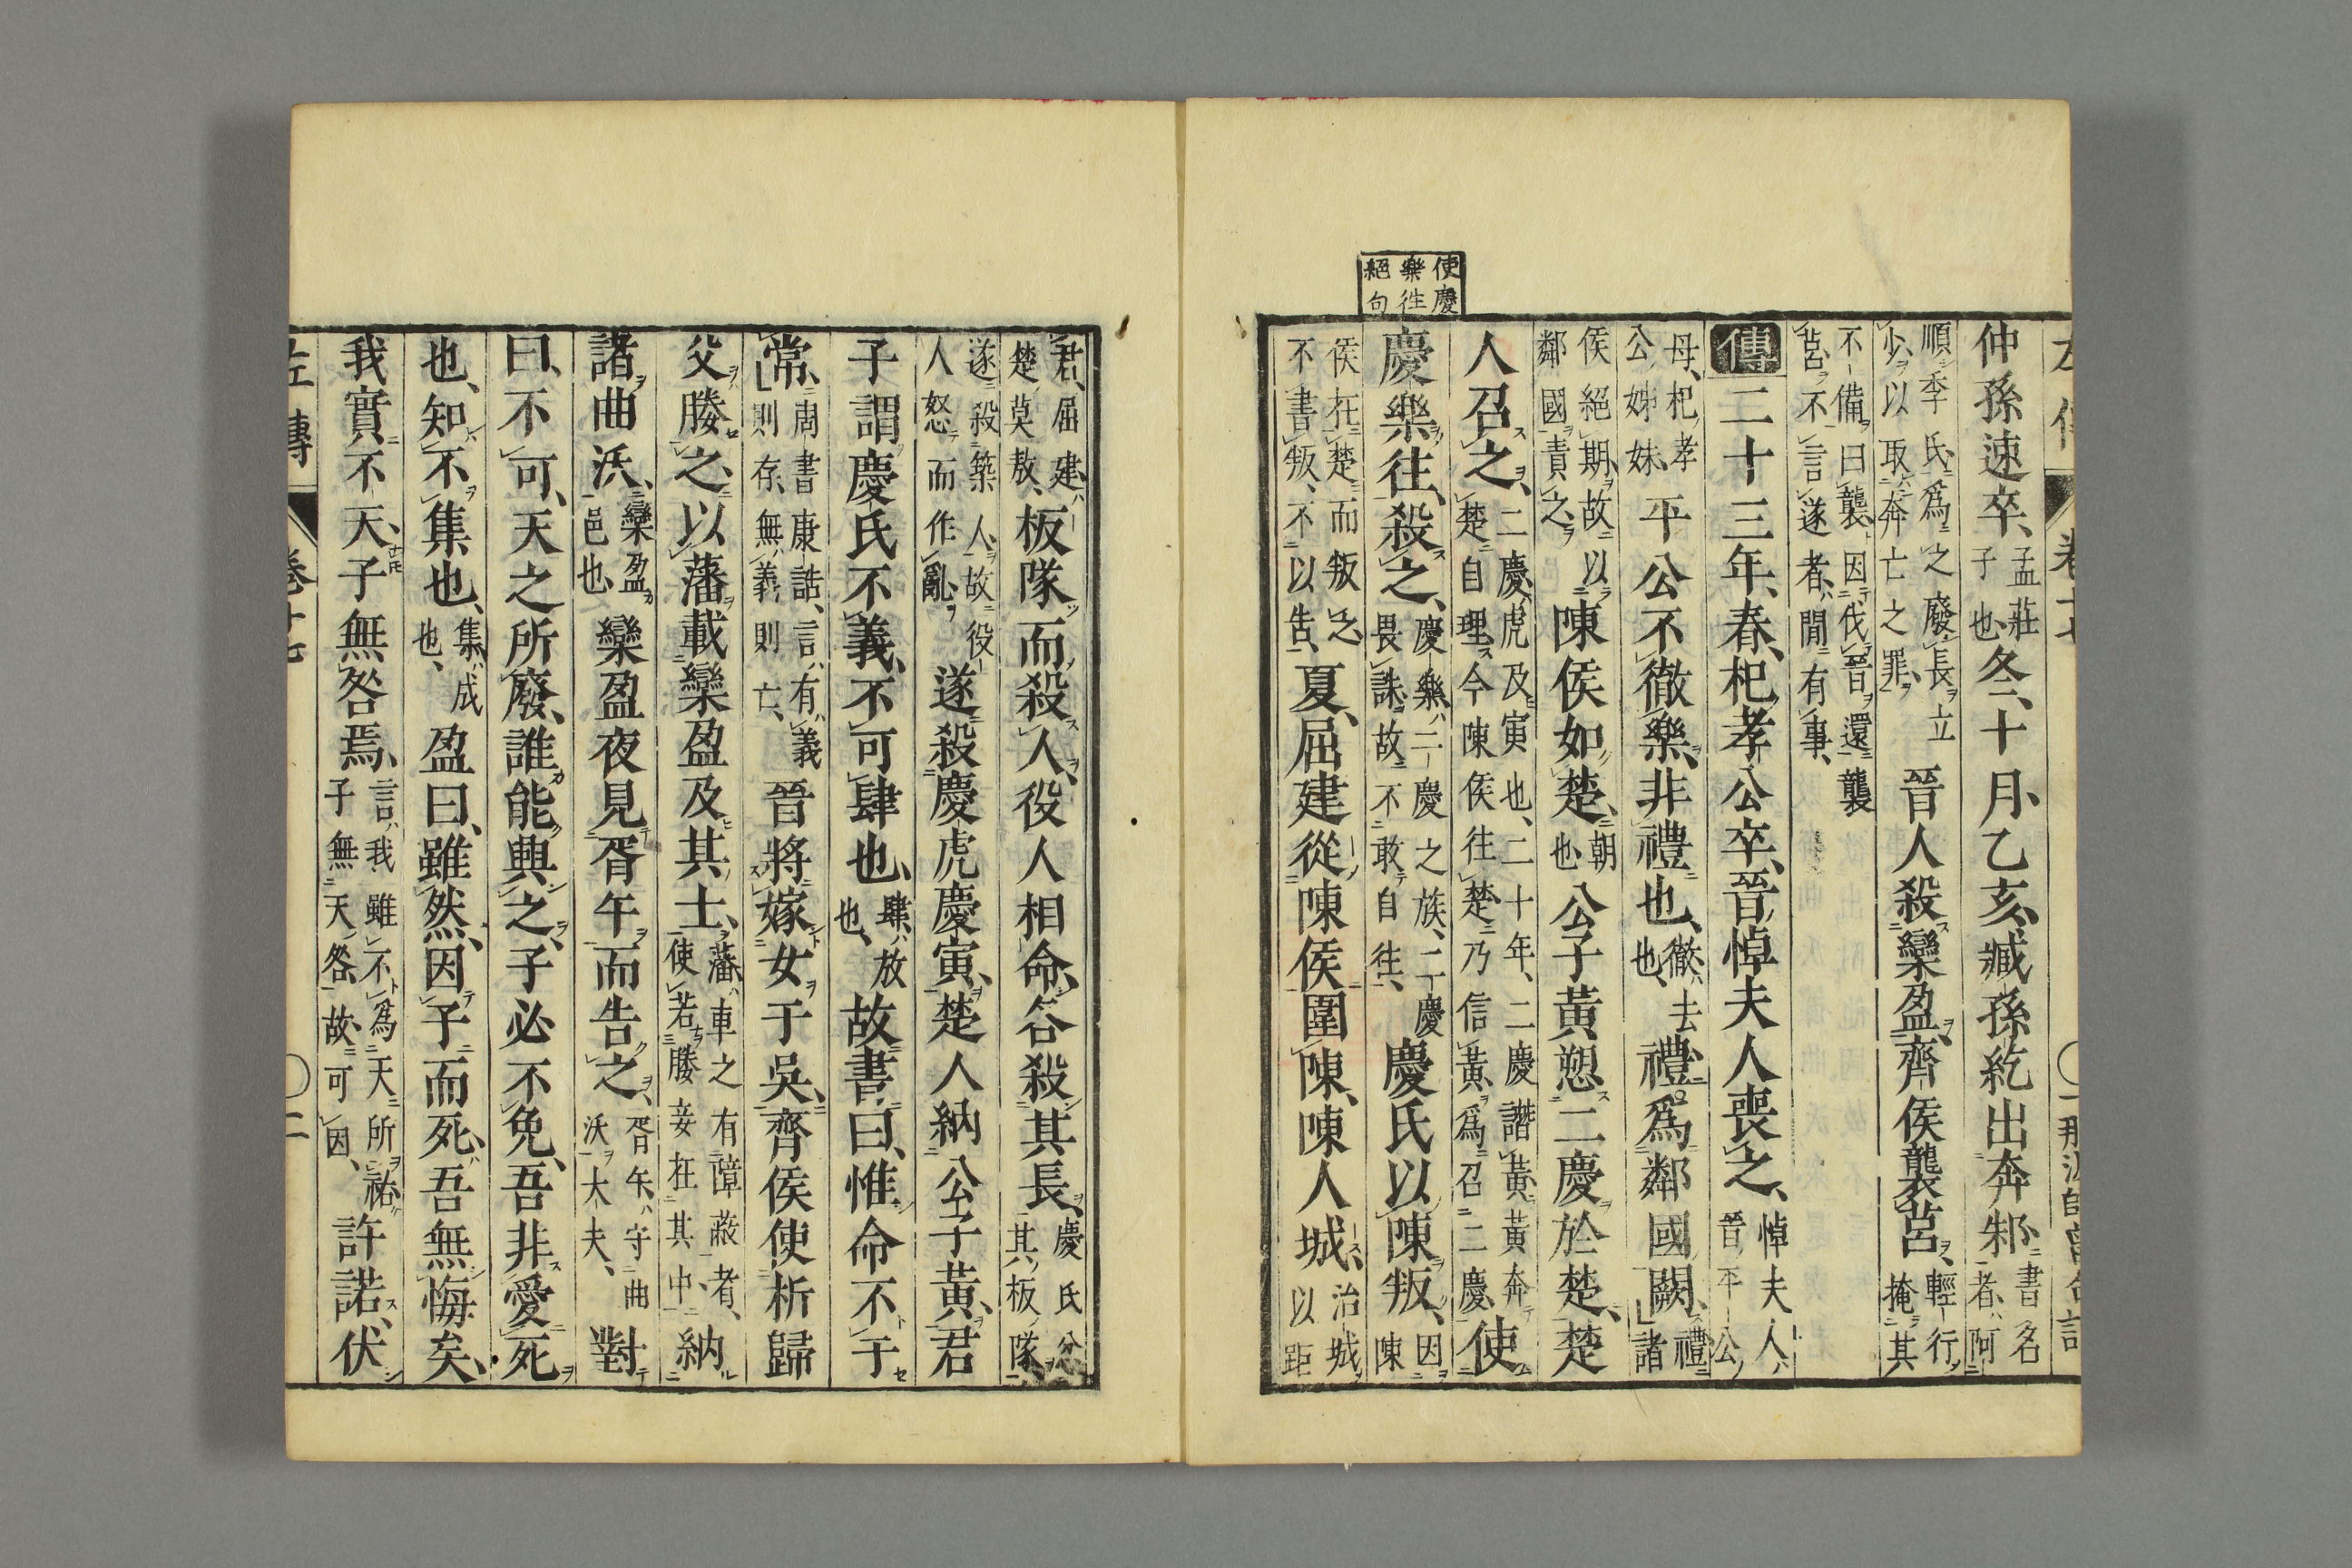 使慶樂往絕句
仲孫速卒、孟莊子也、冬、十月、乙亥、臧孫紇出奔邾、書名者、阿
順季氏、爲之廢長立少、以取奔亡之罪、晉人殺欒盈、齊侯襲莒、輕行掩其
不備曰襲、因伐晉還襲莒、不言遂者、閒有事、
傳二十三年、春、杞孝公卒、晉悼夫人喪之、悼夫人、晉平公
母、杞孝公姊妹、平公不徹樂、非禮也、徹、去也、禮、爲鄰國闕、禮諸
侯絕期、故以鄰國責之、陳侯如楚、朝也、公子黃愬二慶於楚、楚
人召之、二慶、虎及寅也、二十年、二慶譖黃、黃奔楚自理、今陳侯往楚、乃信黃、爲召二慶、使
慶樂往、殺之、慶樂、二慶之族、二慶畏誅、故不敢自往、慶氏以陳叛、因陳
侯在楚而叛之、不書叛、不以告、夏、屈建從陳侯圍陳、陳人城、治城以距
君、屈建、楚莫敖、板隊而殺人、役人相命、各殺其長、慶氏忿其板隊、
遂殺築人、故役人怒而作亂、遂殺慶虎慶寅、楚人納公子黃、君
子謂慶氏不義、不可肆也、肆、放也、故書曰、惟命不于
常、周書康誥、言有義則存、無義則亡、晉將嫁女于吳、齊侯使析歸
父媵之、以藩載欒盈及其士、藩、車之有障蔽者、使若媵妾在其中、納
諸曲沃、欒盈邑也、欒盈夜見胥午而告之、胥午、守曲沃大夫、對
曰、不可、天之所廢、誰能興之、子必不免、吾非愛死
也、知不集也、集、成也、盈曰、雖然、因子而死、吾無悔矣、
我實不天、子無咎焉、言我雖不爲天所祐、子無天咎、故可因、許諾、伏
左傳 卷十七 二